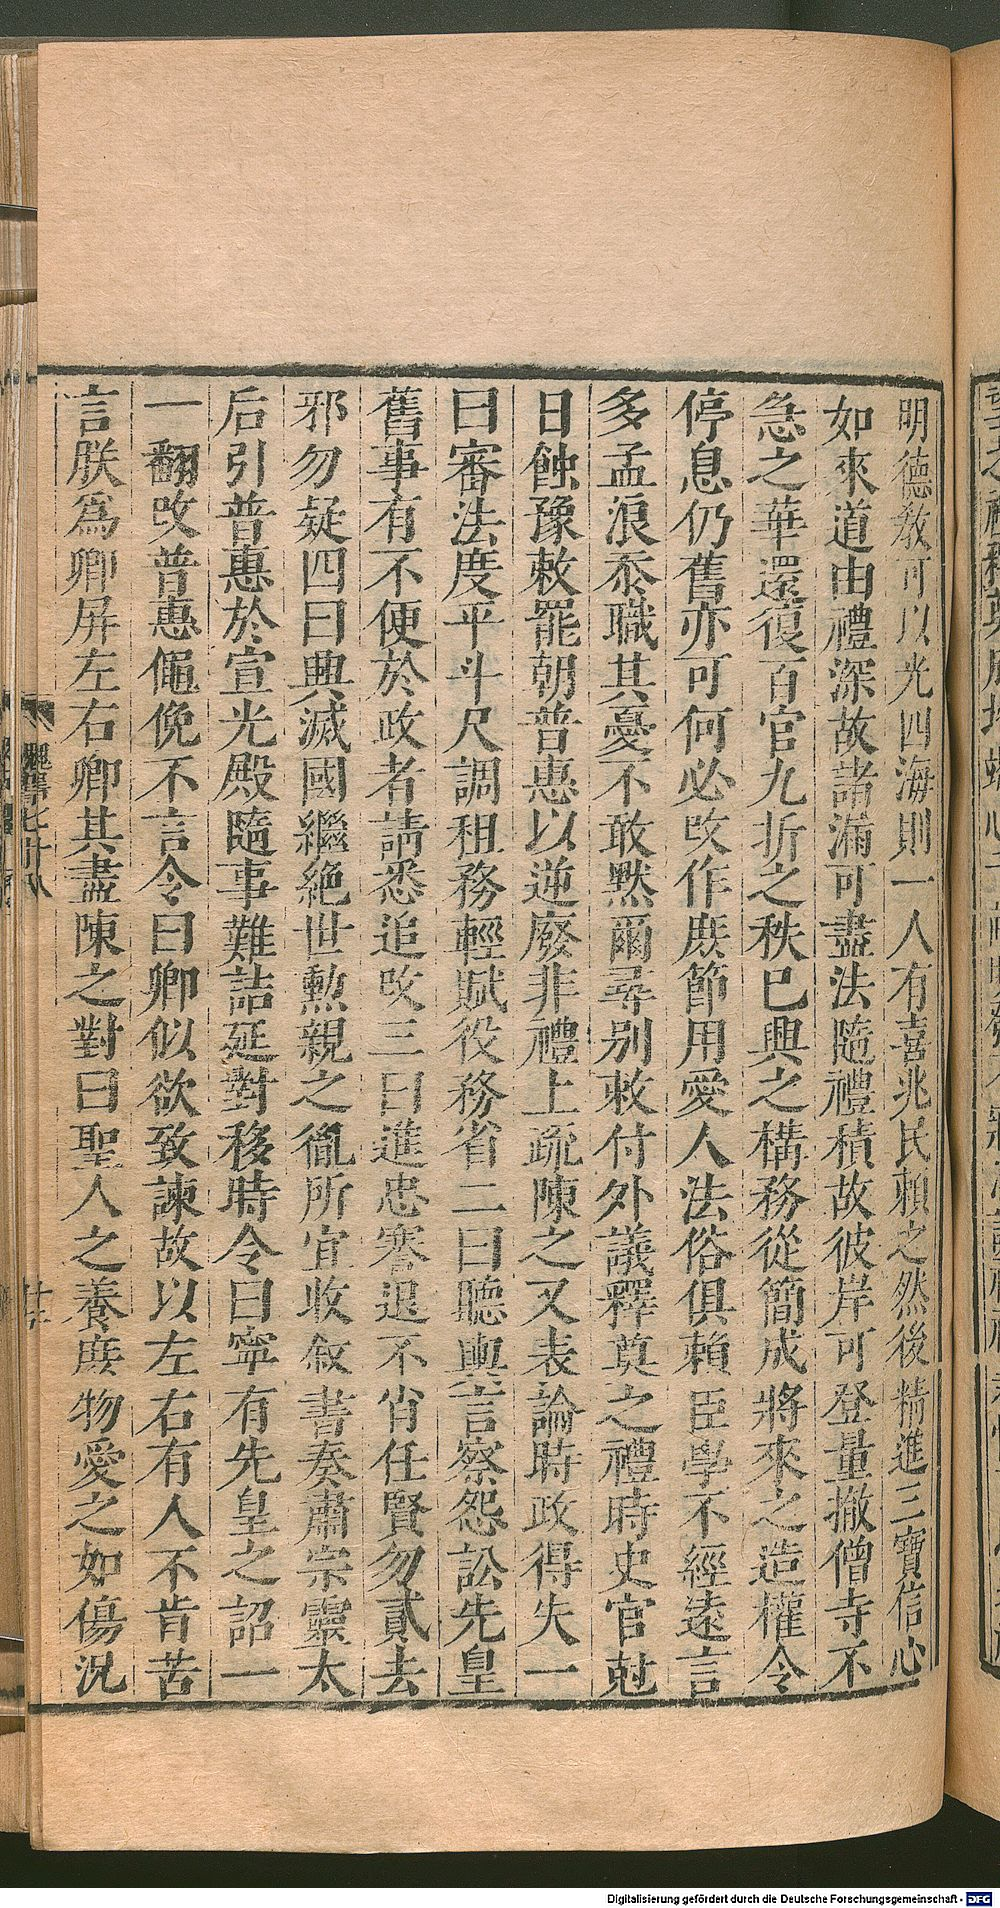 明德教可以光四海則一人有喜兆民賴之然後精進三寶信心
如來道由禮深故諸漏可盡法隨禮積故彼岸可登量撤僧寺不
急之華還復百官九折之秩已興之構務從簡成將來之造權令
停息仍舊亦可何必改作庶節用愛人法俗俱賴臣學不經遠言
多孟浪忝職其憂不敢默爾尋別敕付外議釋奠之禮時史官尅
日蝕豫敕罷朝普惠以逆廢非禮上疏陳之又表論時政得失一
曰審法度平斗尺調租務輕賦役務省二曰聽輿言察怨訟先皇
舊事有不便於政者請悉追改三曰進忠謇退不肖任賢勿貳去
邪勿疑四曰興滅國繼絕世勲親之胤所宜收叙書奏肅宗靈太
后引普惠於宣光殿隨事難詰延對移時令曰寧有先皇之詔一
一翻改普惠僶俛不言令曰卿似欲致諫故以左右有人不肯苦
言朕爲卿屏左右卿其盡陳之對曰聖人之養庶物愛之如傷況
魏書七十八
Digitalisierung gefördert durch die Deutsche Forschungsgemeinschaft - DFG